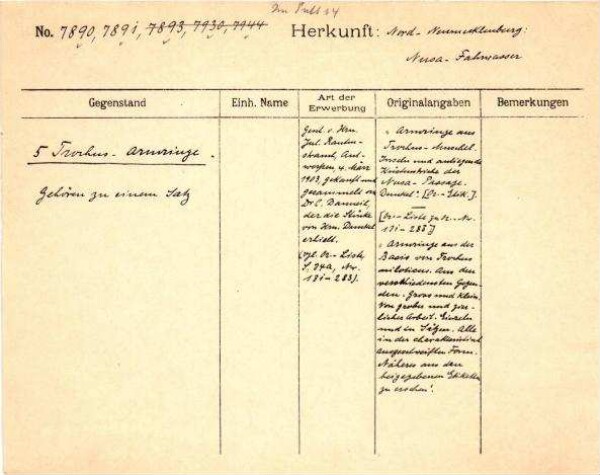 No. 7890, 7891, 7893, 7930, 7944
Herkunft: Nord-Neumecklenburg:
Nusa-Fahrwasser
Gegenstand
Einh. Name
Art der Erwerbung
Originalangaben
Bemerkungen
5 Trochus-Armringe.
Gehören zu einem Satz
Gesch. v. Hrn.
Jul. Rauten-
strauch, Ant-
werpen, 4. März
1903, gekauft und
gesammelt von
Dr C. Danneil,
der die Stücke
von Hrn. Dunkel
erhielt.
(vgl. Or-Liste,
S. 24a, No.
131-288).
"Armringe aus
Trochus-Muschel.
Inseln und anliegende
Küstenstriche der
Nusa-Passage.
Dunkel". [Or-Etik.].
[Or-Liste zu No.
131-288]
"Armringe aus der
Basis von Trochus
niloticus. Aus den
verschiedensten Gegen-
den. Gross und klein.
Von grober und zier-
licher Arbeit. Einzeln
und in Sätzen. Alle
in der charakteristisch
ausgeschweiften Form.
Näheres aus den
beigegebenen Etiketten
zu ersehen".